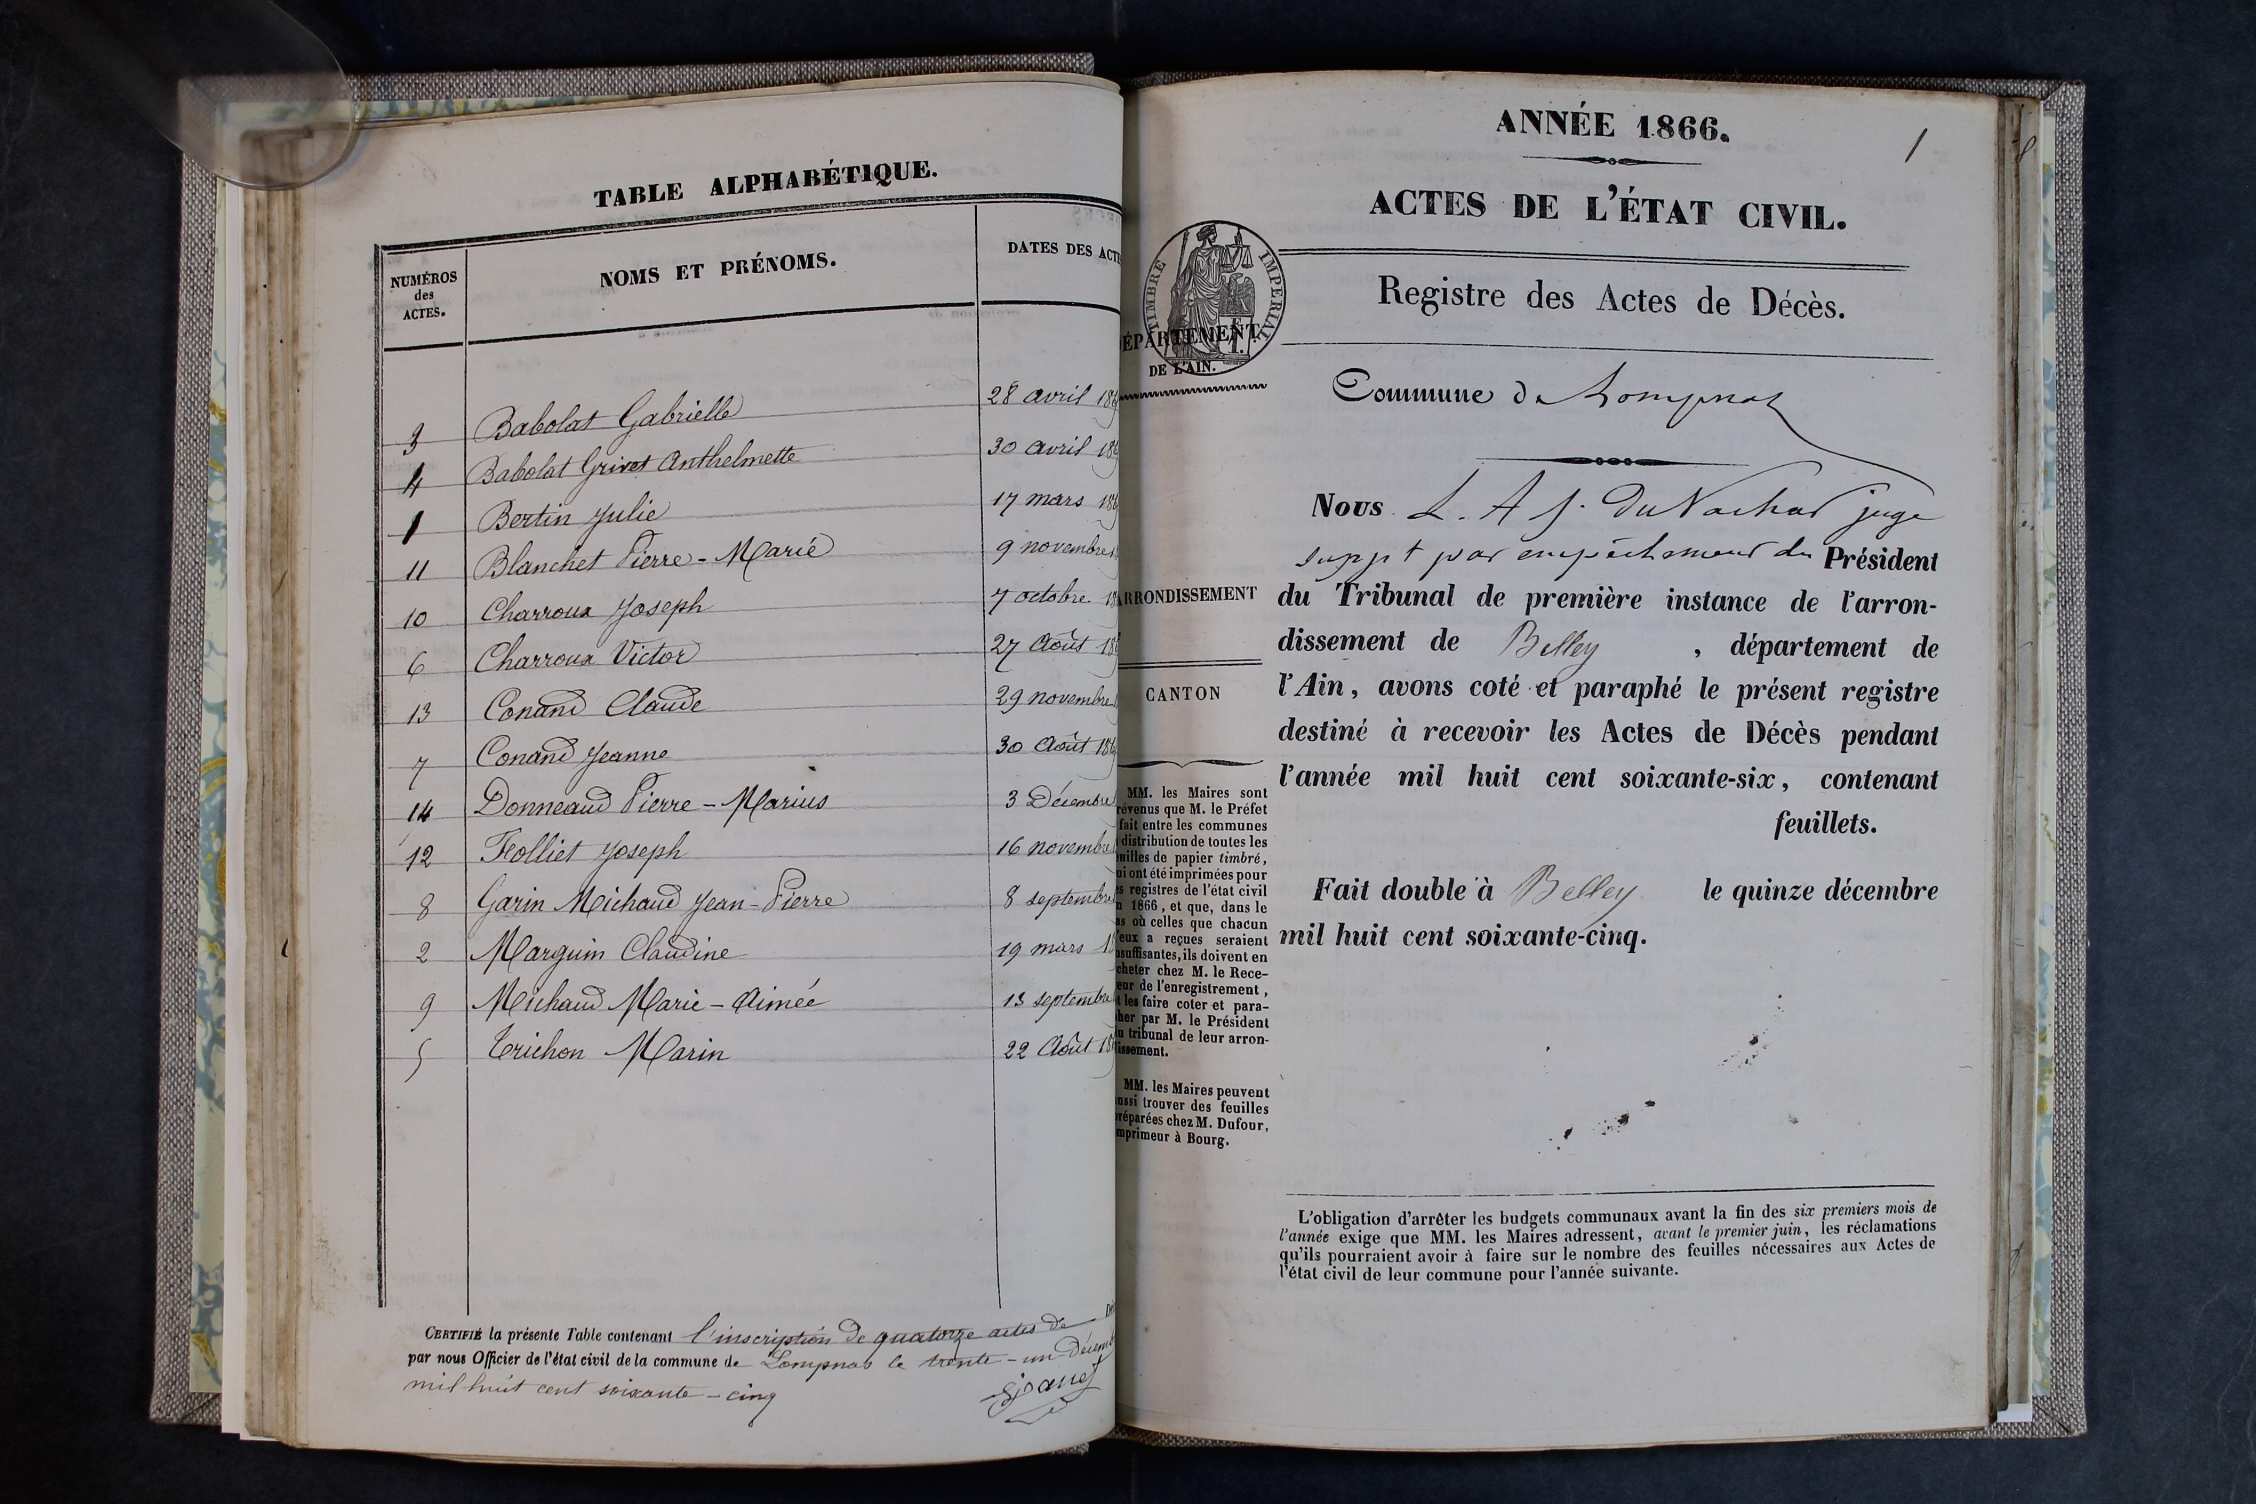 TABLE ALPHABÉTIQUE.
NUMÉROS des ACTES.
NOMS ET PRÉNOMS.
DATES DES ACTE
3 Babolat Gabrielle 28 avril 186
4 Babolat Grivet Anthelmette 30 avril 186
1 Bertin Julie 17 mars 186
11 Blanchet Pierre-Marie 9 novembre
10 Charroux Joseph 7 octobre 18
6 Charroux Victor 27 Août 18
13 Conand Claude 29 novembre
7 Conand Jeanne 30 Août 186
14 Donneaud Pierre-Marius 3 Décembre
12 Folliet Joseph 16 novembre
8 Garin Michaud Jean-Pierre 8 septembre
2 Marguin Claudine 19 mars 18
9 Michaud Marie-Aimée 13 septembre
5 Trichon Marin 22 Août 18
CERTIFIÉ la présente Table contenant l'inscription de quatorze actes de
par nous Officier de l'état civil de la commune de Lompnas le trente-un Décemb
mil huit cent soixante-cinq
ANNÉE 1866.
1
ACTES DE L'ÉTAT CIVIL.
TIMBRE IMPERIAL
Registre des Actes de Décès.
ÉPARTEMENT
DE L'AIN.
Commune de Lompnas
Nous L. A J. Du Nachat juge
suppt par empêchement du Président
du Tribunal de première instance de l'arron-
dissement de Belley , département de
l'Ain, avons coté et paraphé le présent registre
destiné à recevoir les Actes de Décès pendant
l'année mil huit cent soixante-six, contenant
feuillets.
Fait double à Belley le quinze décembre
mil huit cent soixante-cinq.
RRONDISSEMENT
CANTON
MM. les Maires sont
révenus que M. le Préfet
fait entre les communes
distribution de toutes les
uilles de papier timbré,
ui ont été imprimées pour
es registres de l'état civil
n 1866, et que, dans le
as où celles que chacun
'eux a reçues seraient
nsuffisantes, ils doivent en
cheter chez M. le Rece-
eur de l'enregistrement,
t les faire coter et para-
her par M. le Président
u tribunal de leur arron-
issement.
MM. les Maires peuvent
ussi trouver des feuilles
réparées chez M. Dufour,
mprimeur à Bourg.
L'obligation d'arrêter les budgets communaux avant la fin des six premiers mois de
l'année exige que MM. les Maires adressent, avant le premier juin, les réclamations
qu'ils pourraient avoir à faire sur le nombre des feuilles nécessaires aux Actes de
l'état civil de leur commune pour l'année suivante.